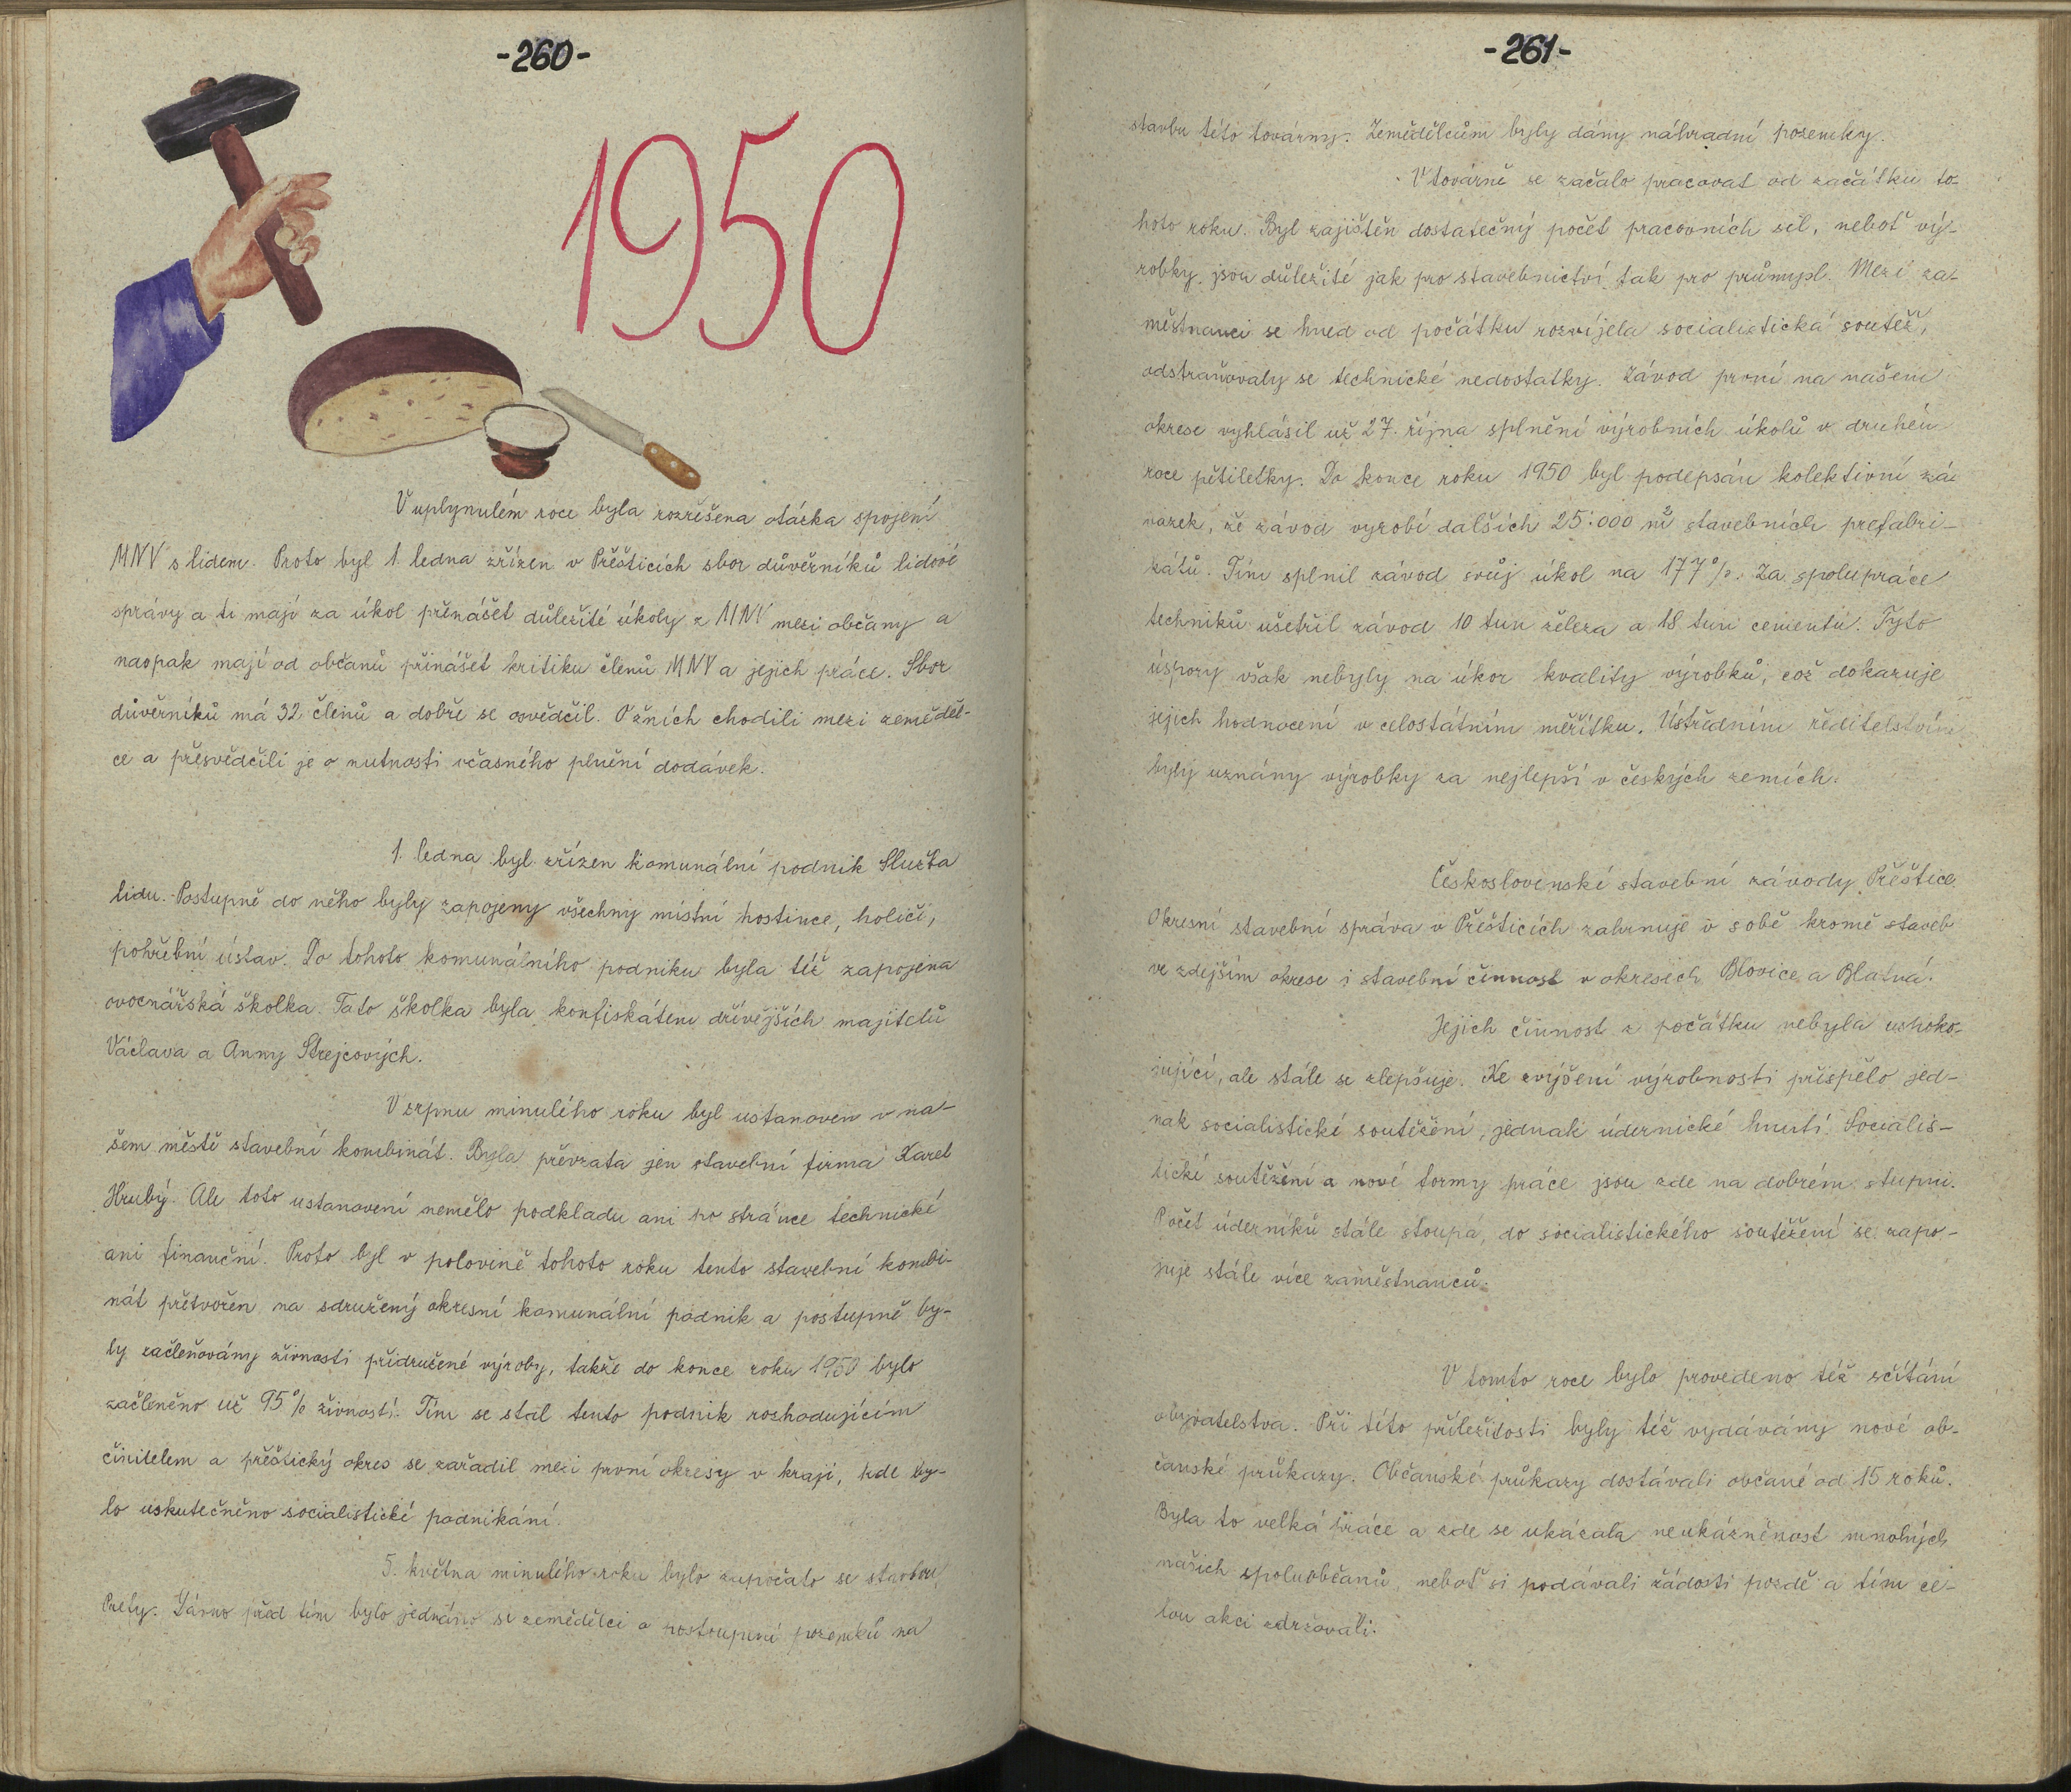 -260-
1950
V uplynulém roce byla rozřešena otázka spojení
MNV s lidem. Proto byl 1. ledna zřízen v Přešticích sbor důvěrníků lidové
správy a ti mají za úkol přenášet důležité úkoly z MNV mezi občany a
naopak mají od občanů přinášet kritiku členů MNV a jejich práce. Sbor
důvěrníků má 32 členů a dobře se osvědčil. O žních chodili mezi zeměděl-
ce a přesvědčili je o nutnosti včasného plnění dodávek.
1. ledna byl zřízen komunální podnik Služba
lidu. Postupně do něho byly zapojeny všechny místní hostince, holiči,
pohřební ústav. Do tohoto komunálního podniku byla též zapojena
ovocnářská školka. Tato školka byla konfiskátem dřívějších majitelů
Václava a Anny Strejcových.
V srpnu minulého roku byl ustanoven v na-
šem městě stavební kombinát. Byla převzata jen stavební firma Karel
Hrubý. Ale toto ustanovení nemělo podkladu ani po stránce technické
ani finanční. Proto byl v polovině tohoto roku tento stavební kombi-
nát přetvořen na sdružený okresní komunální podnik a postupně by-
ly začleňovány živnosti přidružené výroby, takže do konce roku 1950 bylo
začleněno už 95% živností. Tím se stal tento podnik rozhodujícím
činitelem a přeštický okres se zařadil mezi první okresy v kraji, kde by-
lo uskutečněno socialistické podnikání.
5. května minulého roku bylo započato se stavbou
Prefy. Dávno před tím bylo jednáno se zemědělci o postoupení pozemků na
-261-
stavbu této továrny. Zemědělcům byly dány náhradní pozemky.
V továrně se začalo pracovat od začátku to-
hoto roku. Byl zajištěn dostatečný počet pracovních sil, neboť vý-
robky jsou důležité jak pro stavebnictví tak pro průmysl. Mezi za-
městnanci se hned od počátku rozvíjela socialistická soutěž,
odstraňovaly se technické nedostatky. Závod první na našem
okrese vyhlásil už 27. října splnění výrobních úkolů v druhém
roce pětiletky. Do konce roku 1950 byl podepsán kolektivní zá-
vazek, že závod vyrobí dalších 25.000 m² stavebních prefabri-
kátů. Tím splnil závod svůj úkol na 177%. Za spolupráce
techniků ušetřil závod 10 tun železa a 18 tun cementu. Tyto
úspory však nebyly na úkor kvality výrobků, což dokazuje
jejich hodnocení v celostátním měřítku. Ústředním ředitelstvím
byly uznány výrobky za nejlepší v českých zemích.
Československé stavební závody Přeštice
Okresní stavební správa v Přešticích zahrnuje v sobě kromě staveb
ve zdejším okrese i stavební činnost v okresích Blovice a Blatná.
Jejich činnost z počátku nebyla uspoko-
jující, ale stále se zlepšuje. Ke zvýšení výrobnosti přispělo jed-
nak socialistické soutěžení, jednak údernické hnutí. Socialis-
tické soutěžení a nové formy práce jsou zde na dobrém stupni.
Počet úderníků stále stoupá, do socialistického soutěžení se zapo-
juje stále více zaměstnanců.
V tomto roce bylo provedeno též sčítání
obyvatelstva. Při této příležitosti byly též vydávány nové ob-
čanské průkazy. Občanské průkazy dostávali občané od 15 roků.
Byla to velká práce a zde se ukázala neukázněnost mnohých
našich spoluobčanů, neboť si podávali žádosti pozdě a tím ce-
lou akci zdržovali.